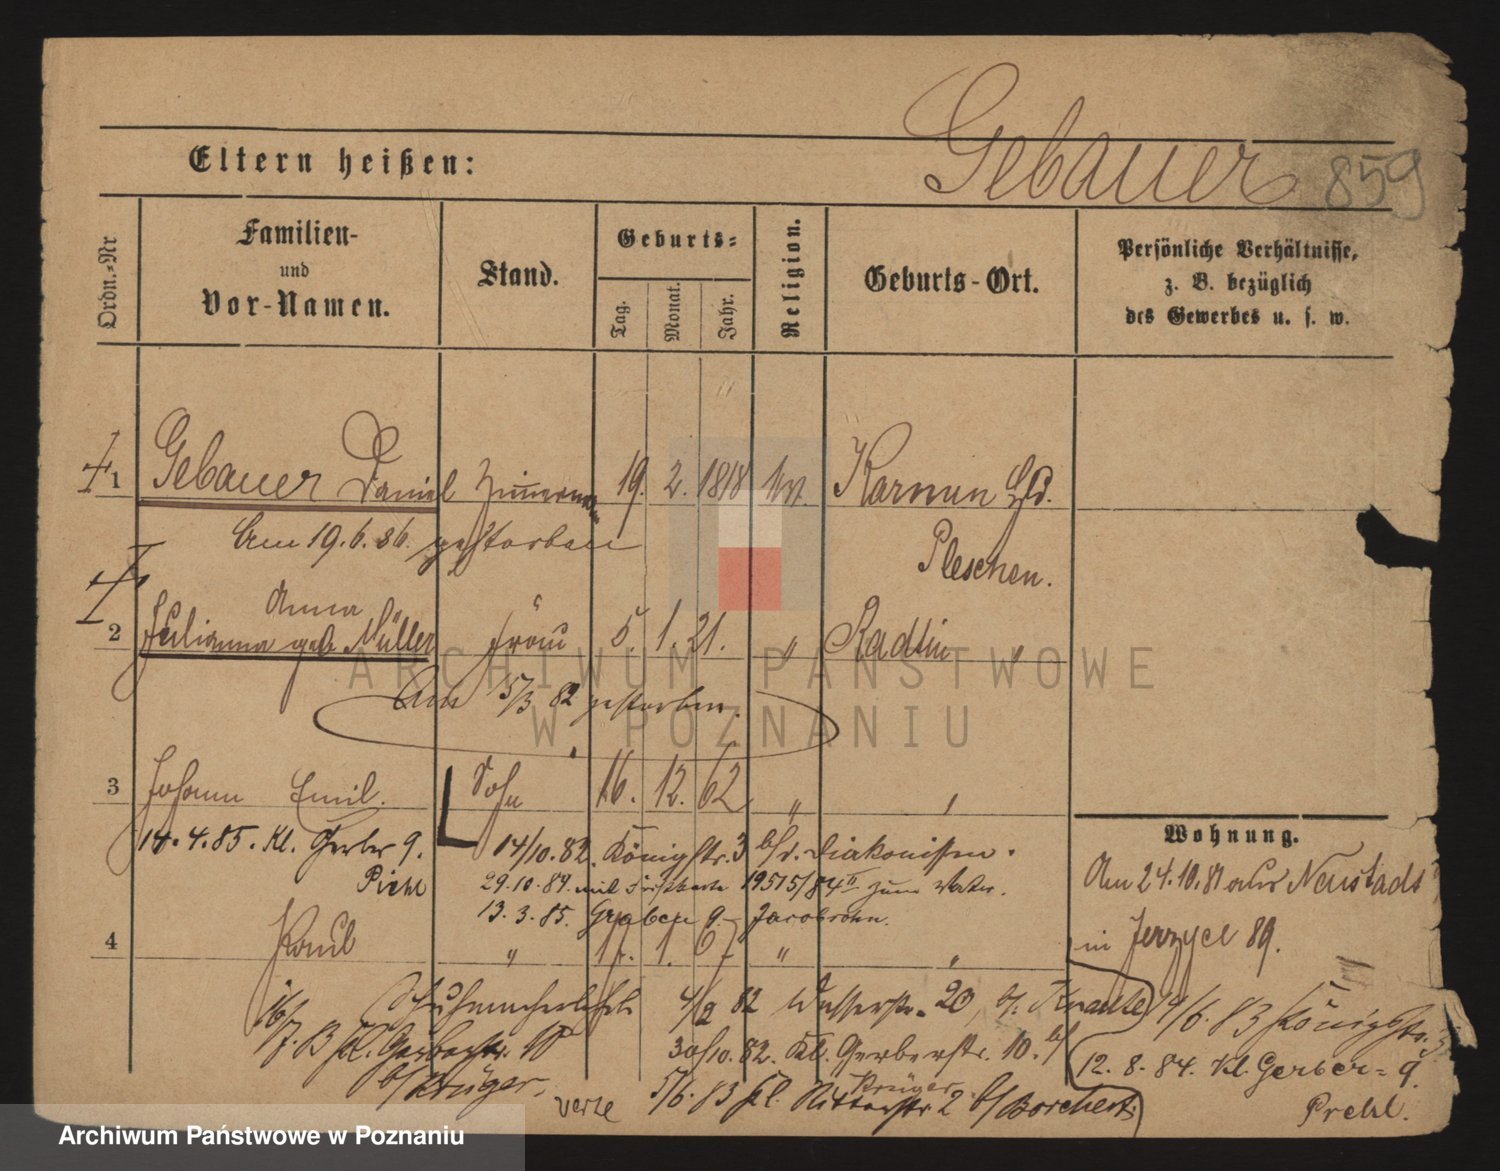 Gebauer 859
Eltern heißen:
Ordn.-Nr
Familien-
und
Vor-Namen.
Stand.
Geburts-
Tag.
Monat.
Jahr.
Religion.
Geburts-Ort.
Persönliche Verhältnisse,
z. B. bezüglich
des Gewerbes u. s. w.
1 Gebauer Daniel 19. 2. 1818 Karmin
Am 19.6.86. gestorben
Pleschen.
Anna
2 Julianna geb. Müller Frau 5. 1. 21. " Radlin "
Am 5/3 82 gestorben.
3 Johann Emil. Sohn 16. 12. 62 " "
14.4.85. Kl. Gerber 9. 14/10.82. Königstr. 3 b/d. Diakonissen.
Piehl 29.10.84. mit 19515/84 II zum Vater.
13.3.85. Graben 9
4 Paul " 1. " "
4/2 82 Wasserstr. 20, b/. Krause
16/7.83 Kl. Gerberstr. 10 30/10.82. Kl. Gerberstr. 10. b/
b/Krüger. Krüger.
verte 5/6.83 kl. Ritterstr 2 b/Borchert.
Wohnung.
Am 24.10.81 aus Neustadt
in Jerzyce 89.
4/6.83 Königstr. 3
12.8.84. Kl. Gerber= 9.
Prehl.
ARCHIWUM PAŃSTWOWE
W POZNANIU
Archiwum Państwowe w Poznaniu